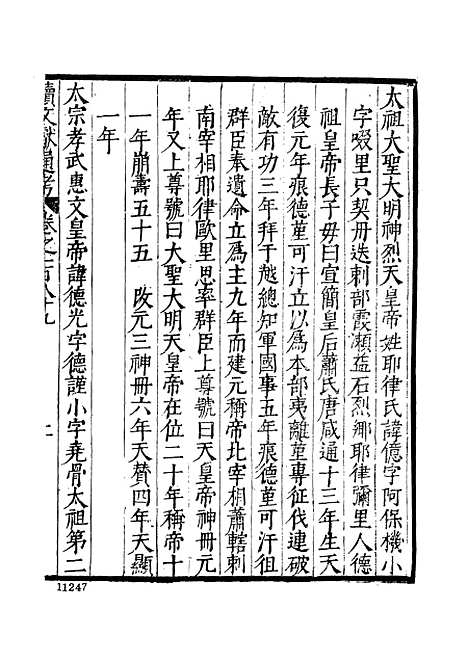 太祖大聖大明神烈天皇帝姓耶律氏諱億字阿保機小
字啜里只契丹迭刺部霞瀬益石烈鄉耶律彌里人德
祖皇帝長子毋曰宣簡皇后蕭氏唐咸通十三年生天
復元年痕德堇可汗立以爲本部夷離堇專征伐連破
敵有功三年拜于越總知軍國事五年痕德堇可汗徂
群臣奉遺命立爲主九年而建元稱帝北宰相蕭轄刺
南宰相耶律歐里思率群臣上尊號曰天皇帝神冊元
年又上尊號曰大聖大明天皇帝在位二十年稱帝十
一年崩壽五十五 改元三神冊六年天贊四年天顯
一年
太宗孝武惠文皇帝諱德光字德謹小字堯骨太祖第二
續文獻通考 卷之一百八十九
11247